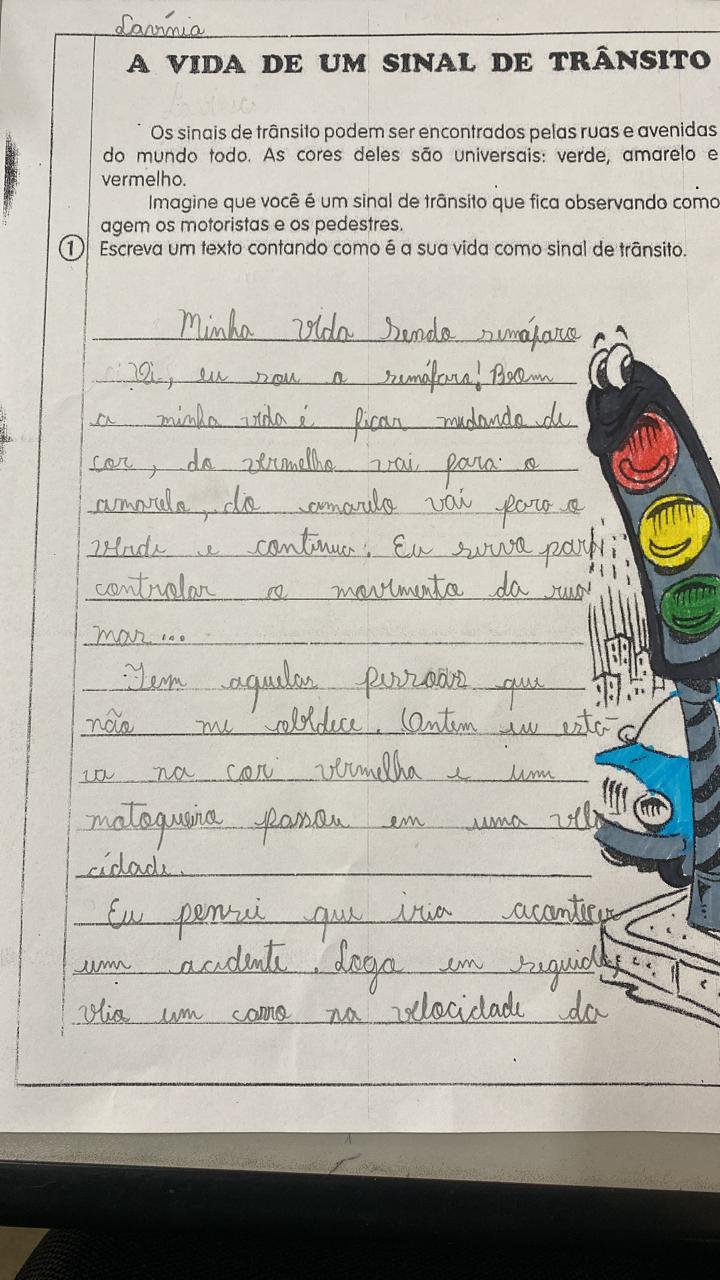 Lavínia
A VIDA DE UM SINAL DE TRÂNSITO
Os sinais de trânsito podem ser encontrados pelas ruas e avenidas
do mundo todo. As cores deles são universais: verde, amarelo e
vermelho.
Imagine que você é um sinal de trânsito que fica observando como
agem os motoristas e os pedestres.
1 Escreva um texto contando como é a sua vida como sinal de trânsito.
Minha vida sendo semáfaro
Oi, eu sou o semáfaro! Boom
a minha vida é ficar mudando de
cor, do vermelho vai para o
amarelo, do amarelo vai para o
verde e continua. Eu sirvo para
controlar o movimento da rua
mas...
Tem aquelas pessoas que
não me obdece. Ontem eu esta-
va na cor vermelha e um
motoqueiro passou em uma velo
cidade.
Eu pensei que iria acontecer
um acidente. Logo em seguida,
veio um carro na velocidade da